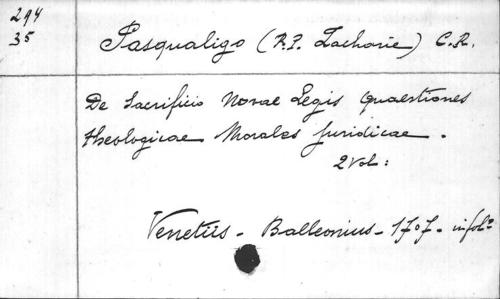 294
35
Pasqualigo (R.P. Zacharie) C.R.
De Sacrificio Novae Legis Quaestiones
theologicae Morales Juridicae.
2 Vol:
Venetiis - Balleonius - 1707 - in fol°